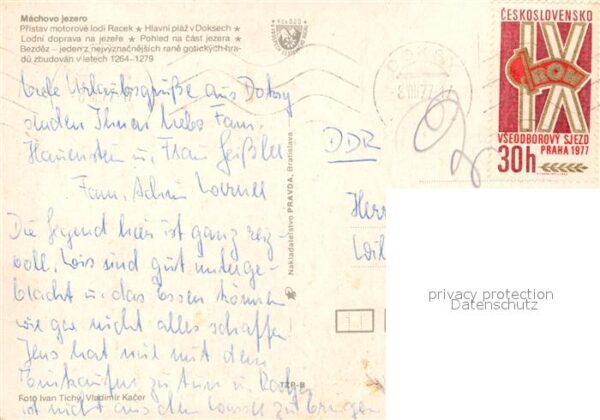 Máchovo jezero
Přístav motorové lodi Racek ★ Hlavní pláž v Doksech ★
Lodní doprava na jezeře ★ Pohled na část jezera ★
Bezděz – jeden z nejvýznačnějších raně gotických hra-
dů zbudován v letech 1264–1279
Viele Urlaubsgrüße aus Doksy
senden Ihnen liebe Fam.
u. Frau Geißler
Fam.
Die Gegend hier ist ganz reiz-
voll. sind gut unterge-
bracht u. das Essen können
wir gar nicht alles schaffen!
Jens hat mit mit dem
Einkaufen zu tun u.
ist nicht aus dem zu bringen
Foto Ivan Tichý, Vladimír Kačer
TZP-B
Nakladatelstvo PRAVDA, Bratislava
DDR
Herr
ČESKOSLOVENSKO
IX
ROH
VŠEODBOROVÝ SJEZD
PRAHA 1977
30h
privacy protection
Datenschutz